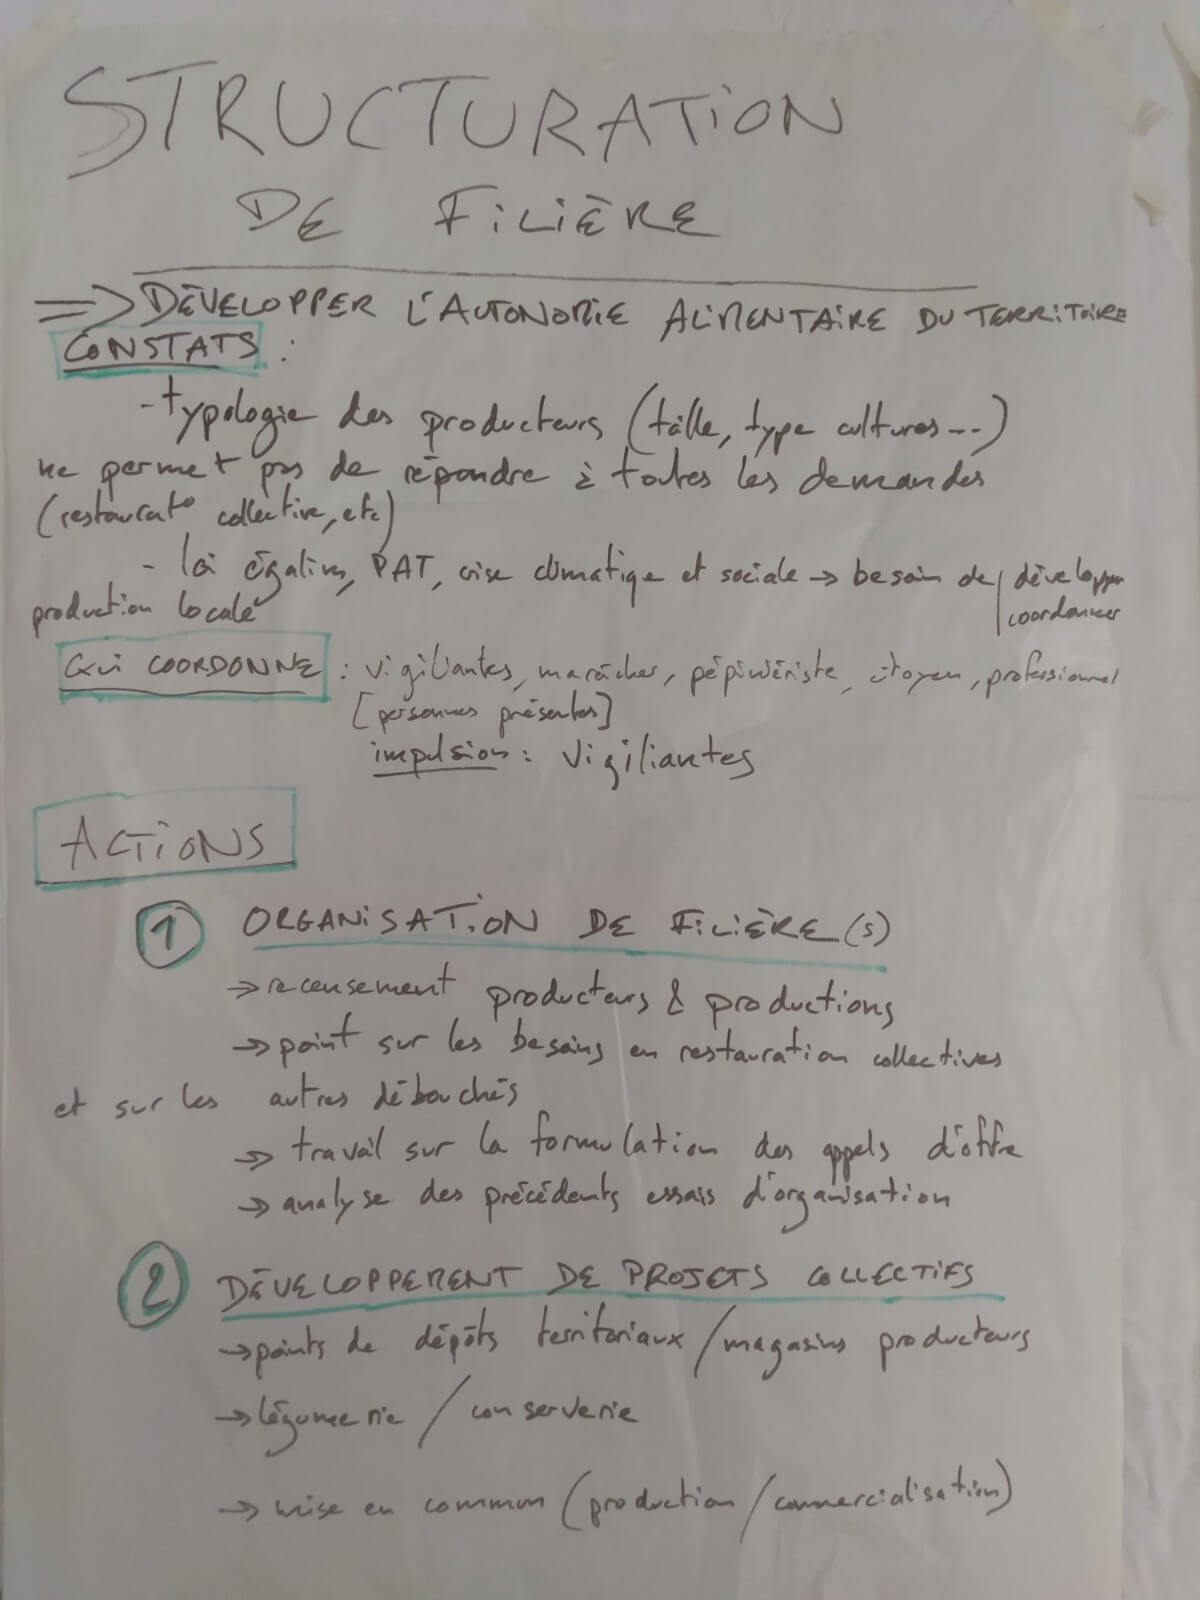 STRUCTURATION
DE FILIÈRE
=> DÉVELOPPER L'AUTONOMIE ALIMENTAIRE DU TERRITOIRE
CONSTATS :
- typologie des producteurs (taille, type cultures...)
ne permet pas de répondre à toutes les demandes
(restaurat° collective, etc)
- loi égalim, PAT, crise climatique et sociale → besoin de développer
production locale coordonner
QUI COORDONNE : vigiliantes, maraîcher, pépiniériste, citoyen, professionnel
[personnes présentes]
impulsion : vigiliantes
ACTIONS
1 ORGANISATION DE FILIÈRE(S)
→ recensement producteurs & productions
→ point sur les besoins en restauration collectives
et sur les autres débouchés
→ travail sur la formulation des appels d'offre
→ analyse des précédents essais d'organisation
2 DÉVELOPPEMENT DE PROJETS COLLECTIFS
→ points de dépôts territoriaux / magasins producteurs
→ légumerie / conserverie
→ mise en commun (production / commercialisation)